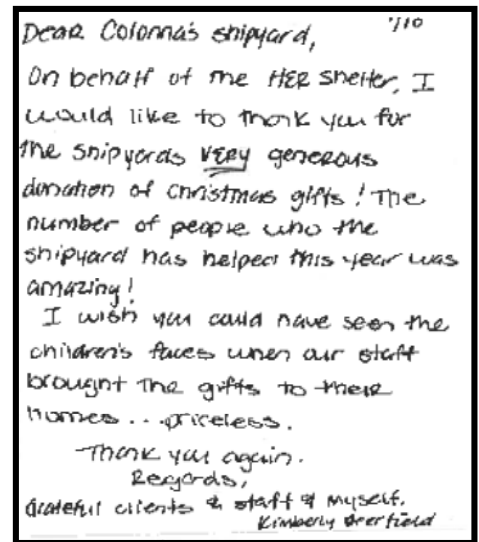 1/10
Dear Colonna's shipyard,
On behalf of the HER Shelter, I
would like to thank you for
the shipyards VERY generous
donation of Christmas gifts! The
number of people who the
shipyard has helped this year was
amazing!
I wish you could have seen the
children's faces when our staff
brought the gifts to their
homes... priceless.
Thank you again.
Regards,
Grateful clients & staff & myself.
Kimberly